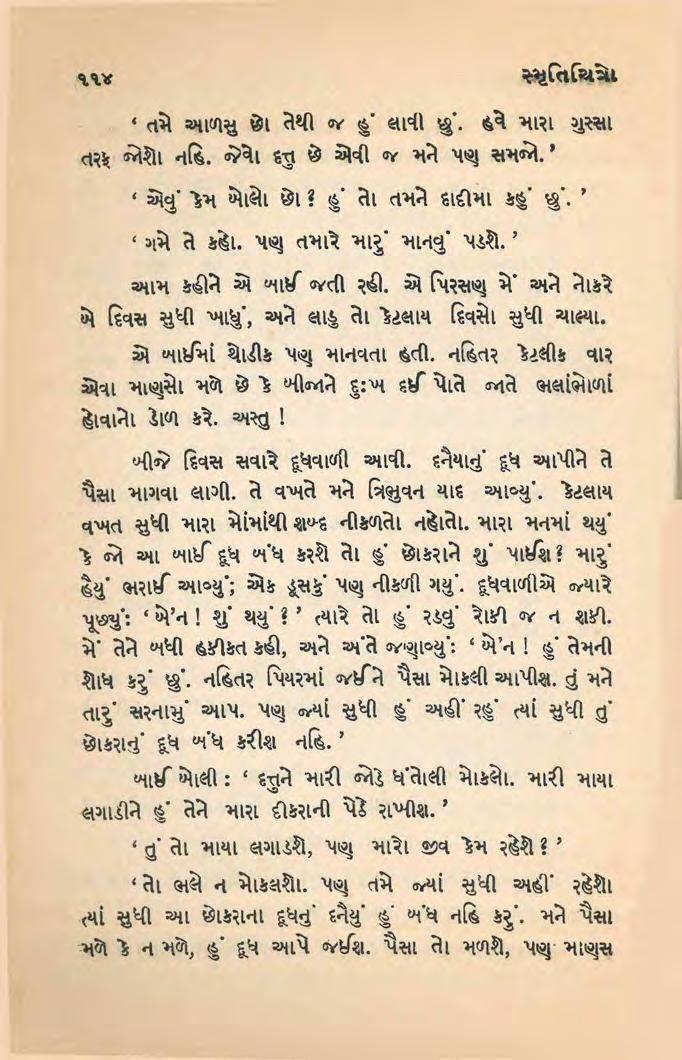 ૧૧૪ સ્મૃતિચિત્રો
‘ તમે આળસુ છો તેથી જ હું લાવી છું. હવે મારા ગુસ્સા
તરફ જોશો નહિ. જેવો દત્તુ છે એવી જ મને પણ સમજો.’
‘ એવું કેમ બોલો છો ? હું તો તમને દાદીમા કહું છું. ’
‘ ગમે તે કહો. પણ તમારે મારું માનવું પડશે. ’
આમ કહીને એ બાઈ જતી રહી. એ પિરસણ મેં અને નોકરે
બે દિવસ સુધી ખાધું, અને લાડુ તો કેટલાય દિવસો સુધી ચાલ્યા.
એ બાઈમાં થોડીક પણ માનવતા હતી. નહિતર કેટલીક વાર
એવા માણસો મળે છે કે બીજાને દુઃખ દઈ પોતે જાતે ભલાંભોળાં
હોવાનો ડોળ કરે. અસ્તુ !
બીજે દિવસ સવારે દૂધવાળી આવી. દનૈયાનું દૂધ આપીને તે
પૈસા માગવા લાગી. તે વખતે મને ત્રિભુવન યાદ આવ્યું. કેટલાય
વખત સુધી મારા મોંમાંથી શબ્દ નીકળતો નહોતો. મારા મનમાં થયું
કે જો આ બાઈ દૂધ બંધ કરશે તો હું છોકરાને શું પાઈશ ? મારું
હૈયું ભરાઈ આવ્યું; એક ડૂસકું પણ નીકળી ગયું. દૂધવાળીએ જ્યારે
પૂછ્યું: ‘ બે’ન ! શું થયું ? ’ ત્યારે તો હું રડવું રોકી જ ન શકી.
મેં તેને બધી હકીકત કહી, અને અંતે જણાવ્યું: ‘ બે’ન ! હું તેમની
શોધ કરું છું. નહિતર પિયરમાં જઈને પૈસા મોકલી આપીશ. તું મને
તારું સરનામું આપ. પણ જ્યાં સુધી હું અહીં રહું ત્યાં સુધી તું
છોકરાનું દૂધ બંધ કરીશ નહિ. ’
બાઈ બોલી : ‘ દત્તુને મારી જોડે ધંતોલી મોકલો. મારી માયા
લગાડીને હું તેને મારા દીકરાની પેઠે રાખીશ. ’
‘ તું તો માયા લગાડશે, પણ મારો જીવ કેમ રહેશે ? ’
‘ તો ભલે ન મોકલશો. પણ તમે જ્યાં સુધી અહીં રહેશો
ત્યાં સુધી આ છોકરાના દૂધનું દનૈયું હું બંધ નહિ કરું. મને પૈસા
મળે કે ન મળે, હું દૂધ આપે જઈશ. પૈસા તો મળશે, પણ માણસ